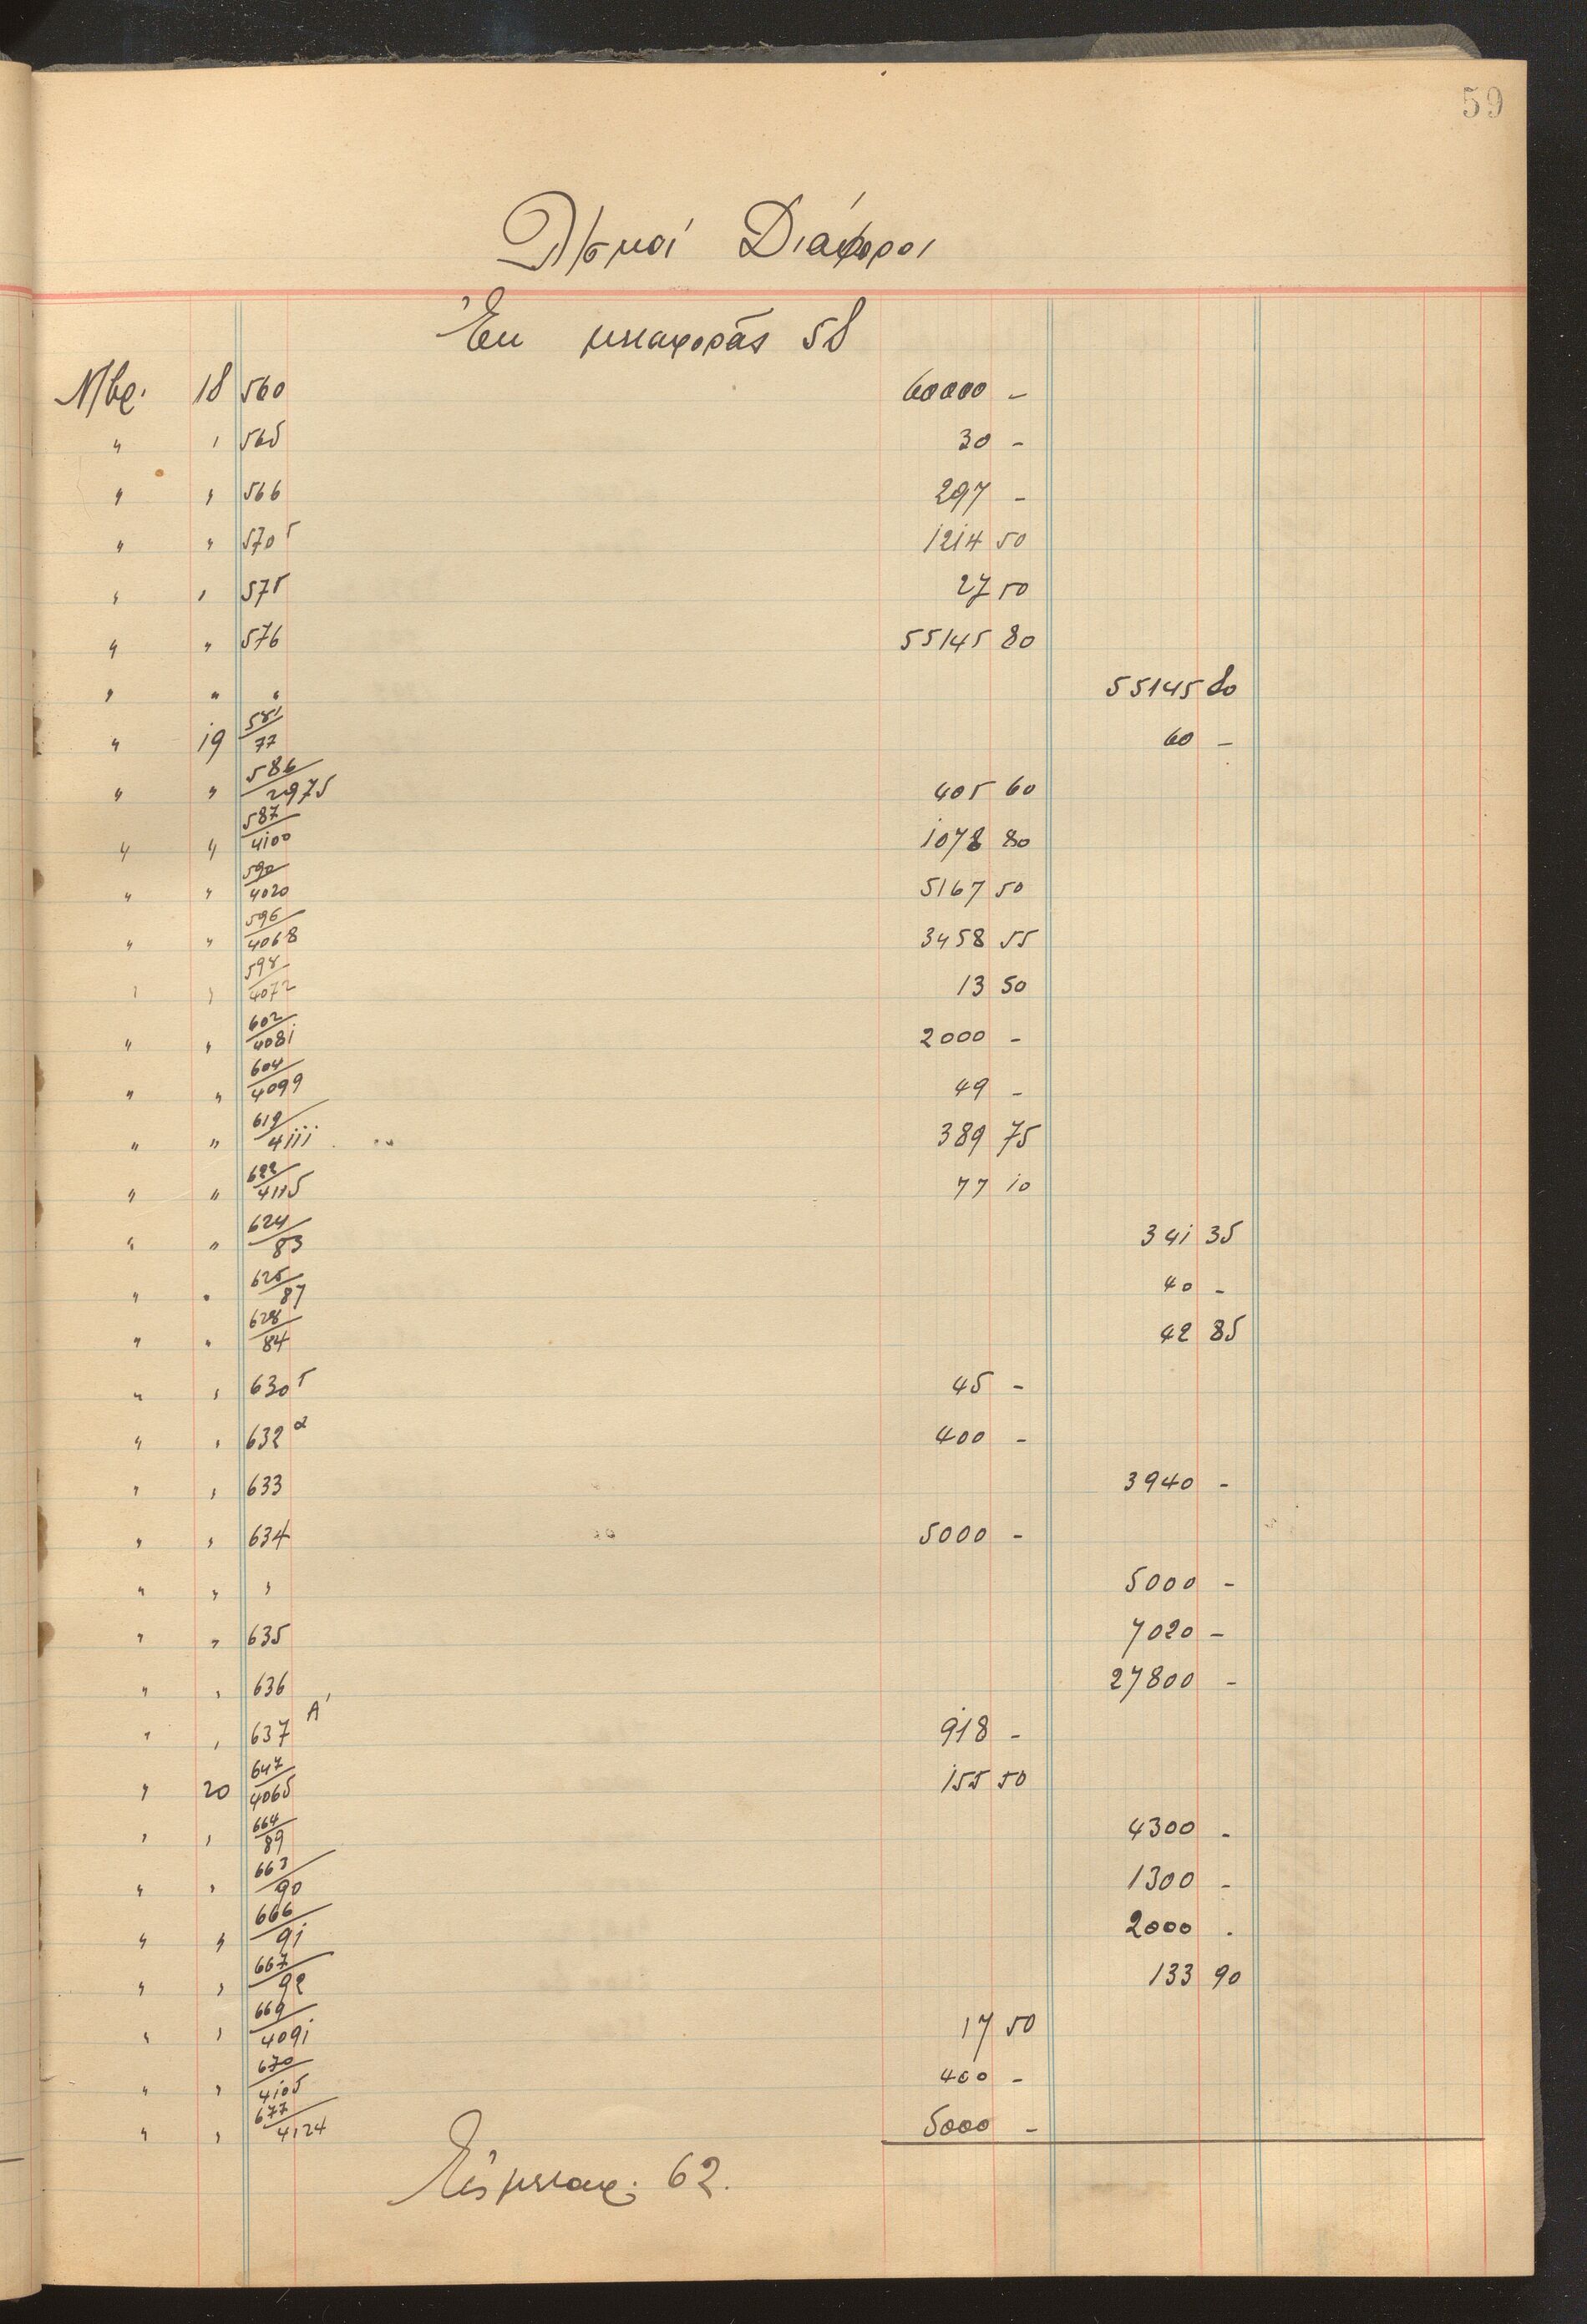 59
Δ/σμοί Διάφοροι
Ἐκ μεταφορᾶς 58
Ν/βρ. 18 560 60000 –
" " 565 30 –
" " 566 297 –
" " 570 1214 50
" " 575 27 50
" " 576 55145 80
" " " 55145 80
" 19 581/77 60 –
" " 586/2975 405 60
" " 587/4100 1078 80
" " 590/4020 5167 50
" " 596/4068 3458 55
" " 598/4072 13 50
" " 602/4081 2000 –
" " 604/4099 49 –
" " 619/4111 389 75
" " 622/4115 77 10
" " 624/83 341 35
" " 625/87 40 –
" " 628/84 42 85
" " 630 45 –
" " 632 α 400 –
" " 633 3940 –
" " 634 5000 –
" " " 5000 –
" " 635 7020 –
" " 636 27800 –
" " 637 Α' 918 –
" 20 647/4065 155 50
" " 664/89 4300 –
" " 663/90 1300 –
" " 666/91 2000 –
" " 667/92 133 90
" " 669/4091 17 50
" " 670/4105 400 –
" " 677/4124 5000 –
Εἰς μεταφ. 62.